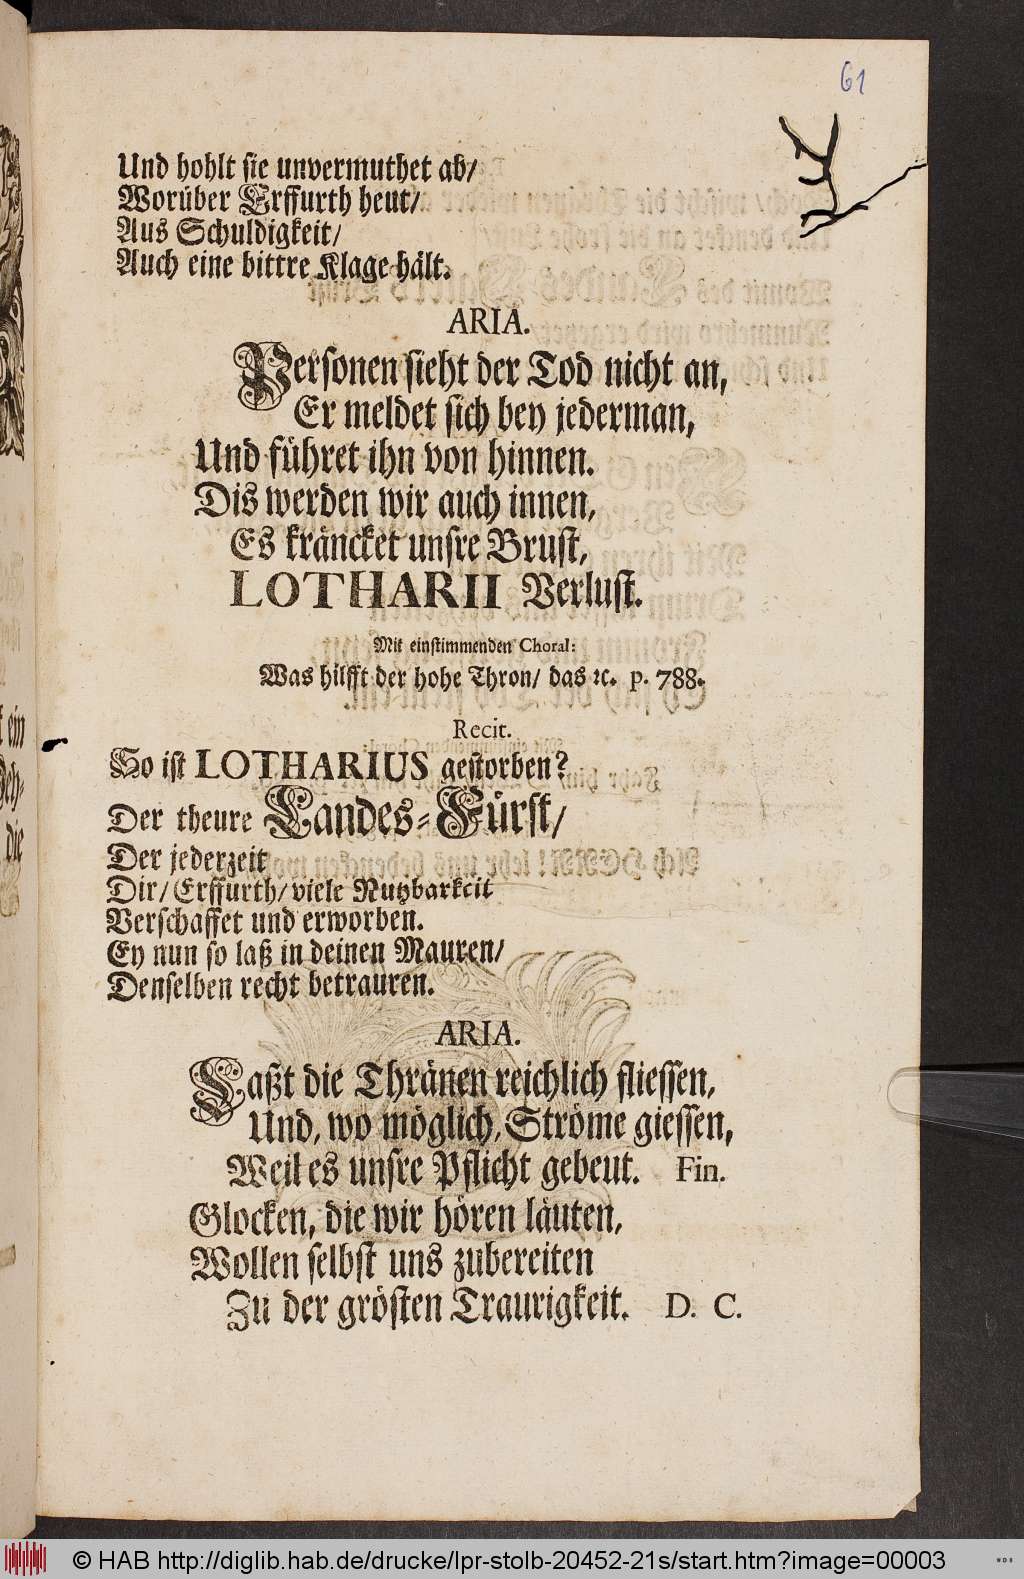 61
Und hohlt sie unvermuthet ab/
Worüber Erffurth heut/
Aus Schuldigkeit/
Auch eine bittre Klage hält.
ARIA.
Personen sieht der Tod nicht an,
Er meldet sich bey jederman,
Und führet ihn von hinnen.
Dis werden wir auch innen,
Es kräncket unsre Brust,
LOTHARII Verlust.
Mit einstimmenden Choral:
Was hilfft der hohe Thron/ das ꝛc. p. 788.
Recit.
So ist LOTHARIUS gestorben?
Der theure Landes-Fürst/
Der jederzeit
Dir/ Erffurth/ viele Nutzbarkeit
Verschaffet und erworben.
Ey nun so laß in deinen Mauren/
Denselben recht betrauren.
ARIA.
Laßt die Thränen reichlich fliessen,
Und, wo möglich, Ströme giessen,
Weil es unsre Pflicht gebeut. Fin.
Glocken, die wir hören läuten,
Wollen selbst uns zubereiten
Zu der grösten Traurigkeit. D. C.
© HAB http://diglib.hab.de/drucke/lpr-stolb-20452-21s/start.htm?image=00003